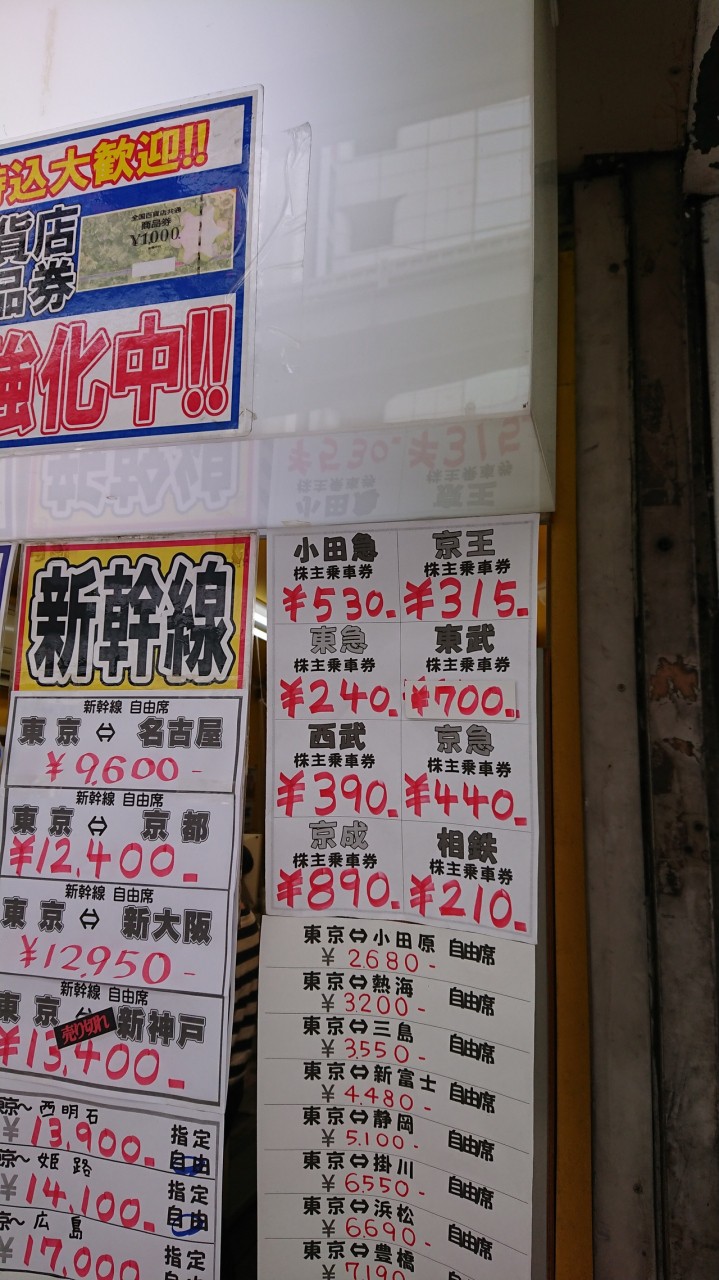 持込大歓迎!!
貨店
品券
全国百貨店共通
商品券
¥1,000
強化中!!
新幹線
新幹線 自由席
東京 ⇔ 名古屋
¥9,600-
新幹線 自由席
東京 ⇔ 京都
¥12,400-
新幹線 自由席
東京 ⇔ 新大阪
¥12,950-
新幹線 自由席
東京 ⇔ 新神戸
売り切れ
¥13,400-
京〜西明石
¥13,900- 指定 自由
京〜姫路
¥14,100- 指定 自由
京〜広島
¥17,000 指定
小田急
株主乗車券
¥530-
京王
株主乗車券
¥315-
東急
株主乗車券
¥240-
東武
株主乗車券
¥700-
西武
株主乗車券
¥390-
京急
株主乗車券
¥440-
京成
株主乗車券
¥890-
相鉄
株主乗車券
¥210-
東京⇔小田原 自由席
¥ 2680-
東京⇔熱海 自由席
¥ 3200-
東京⇔三島 自由席
¥ 3,550-
東京⇔新富士 自由席
¥ 4,480-
東京⇔静岡 自由席
¥ 5,100-
東京⇔掛川 自由席
¥ 6,550-
東京⇔浜松 自由席
¥ 6,690-
東京⇔豊橋
¥ 7,190